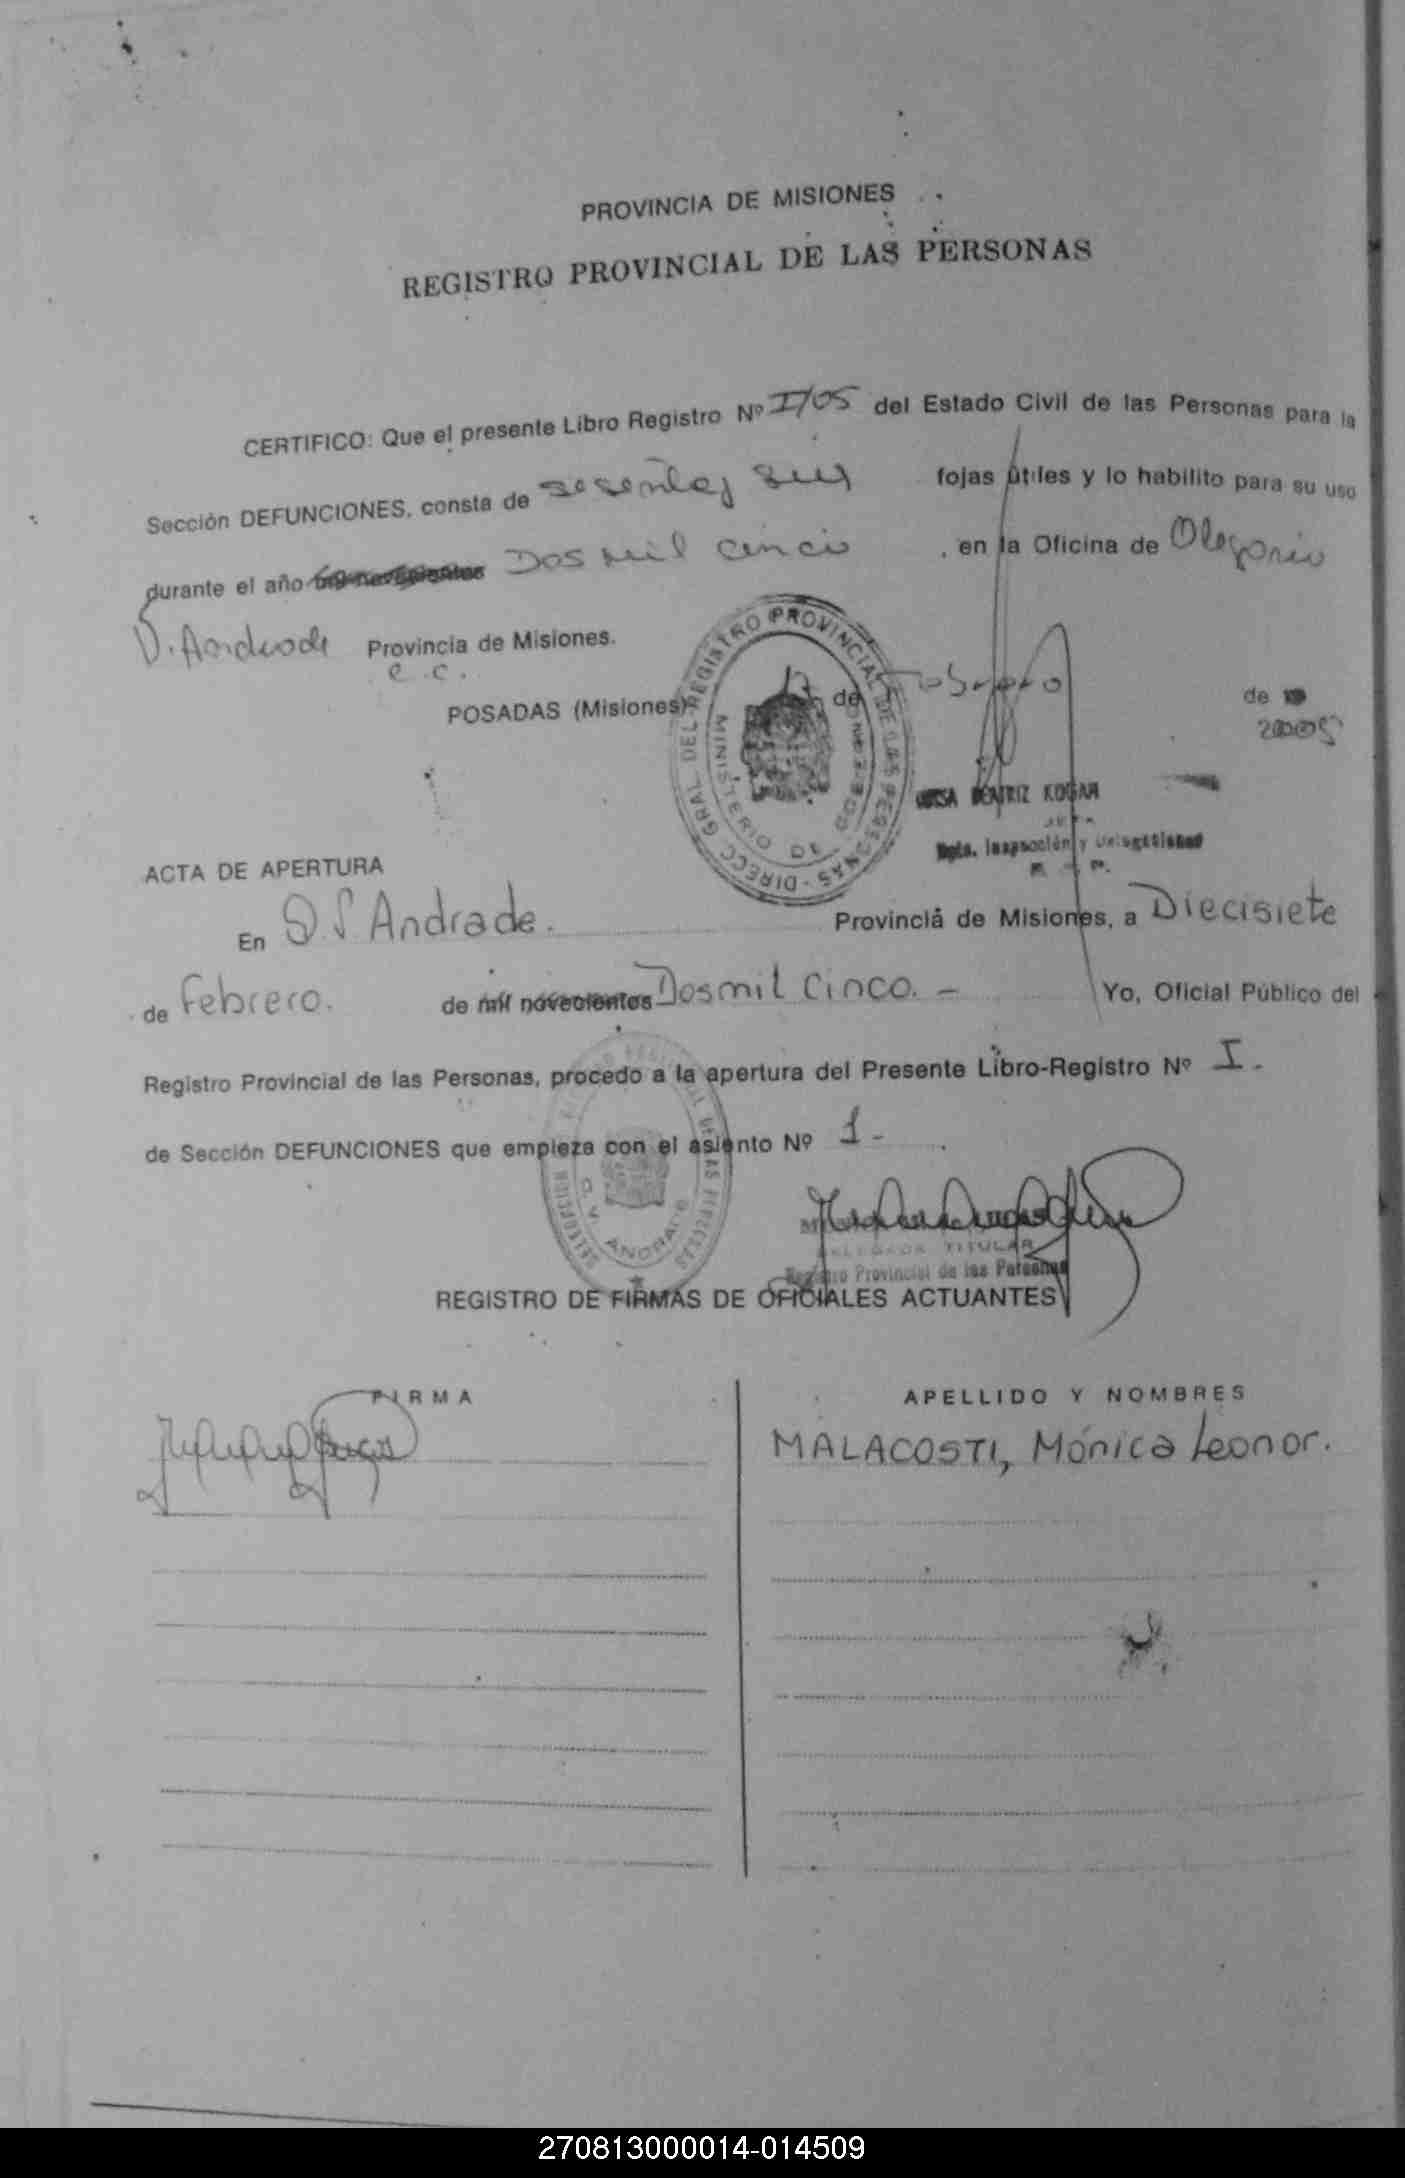 PROVINCIA DE MISIONES
REGISTRO PROVINCIAL DE LAS PERSONAS
CERTIFICO: Que el presente Libro Registro Nº I/05 del Estado Civil de las Personas para la
Sección DEFUNCIONES, consta de fojas útiles y lo habilito para su uso
durante el año mil novecientos Dos mil cinco, en la Oficina de Olegario
V. Andrade Provincia de Misiones.
POSADAS (Misiones) 17 de Febrero de
2005
DIRECC. GRAL DEL REGISTRO PROVINCIAL DE LAS PERSONAS
MINISTERIO DE GOBIERNO
BEATRIZ KOGAN
Dpto. Inspección y Delegaciones
ACTA DE APERTURA
En O.V Andrade. Provincia de Misiones, a Diecisiete
de Febrero. de mil novecientos Dosmil Cinco. - Yo, Oficial Público del
Registro Provincial de las Personas, procedo a la apertura del Presente Libro-Registro Nº I.-
de Sección DEFUNCIONES que empieza con el asiento Nº 1-
O. V. ANDRADE
DELEGADA TITULAR
Registro Provincial de las Personas
REGISTRO DE FIRMAS DE OFICIALES ACTUANTES
FIRMA APELLIDO Y NOMBRES
MALACOSTI, Mónica Leonor.
270813000014-014509